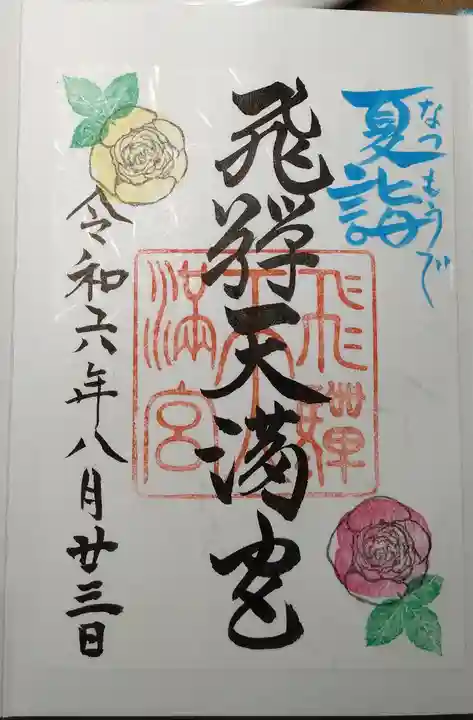 夏詣
なつもうで
飛騨天満宮
飛騨
天
満宮
令和六年八月廿三日